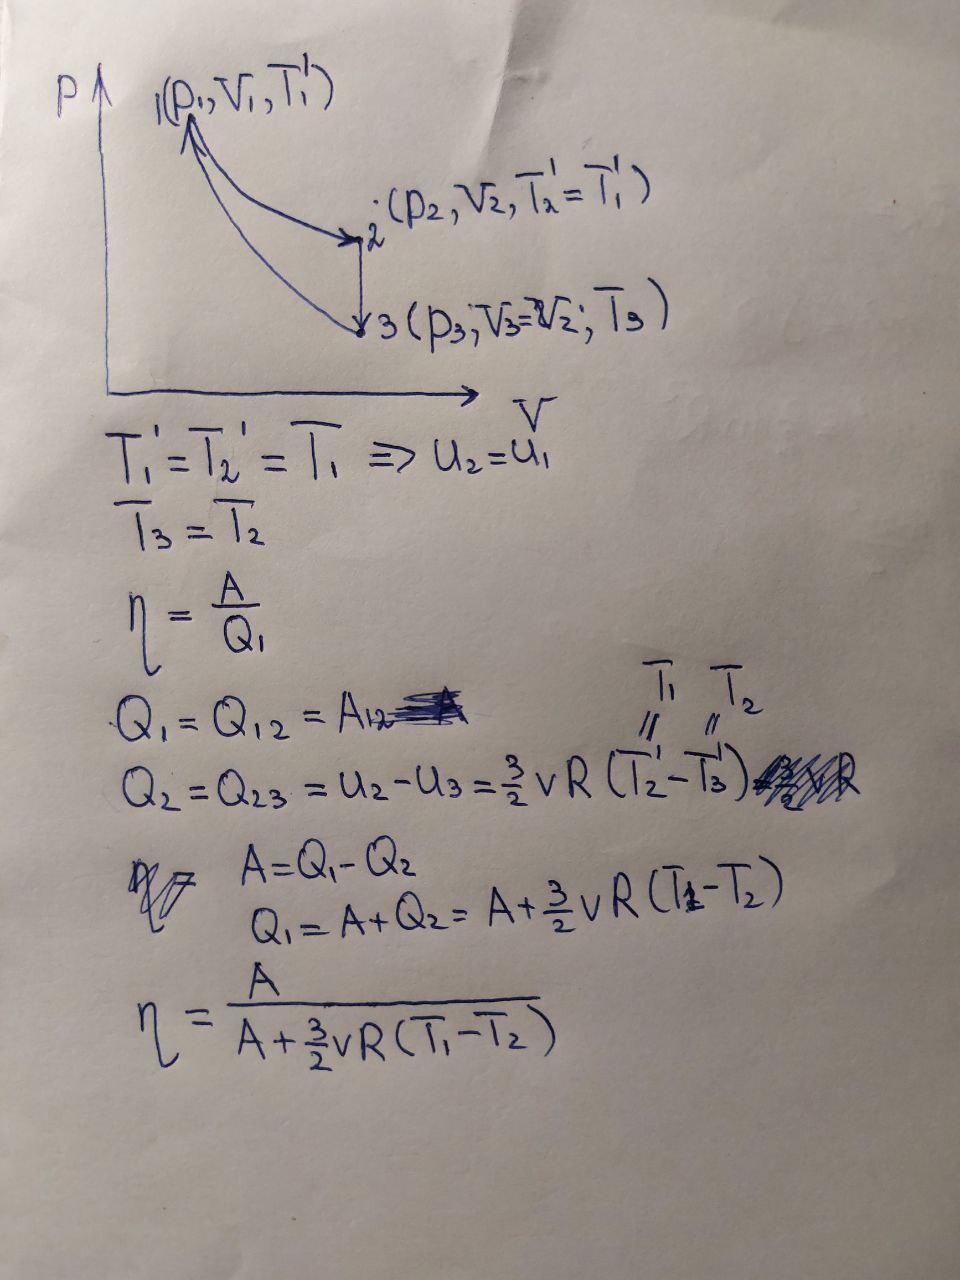 p
1(p₁, V₁, T₁')
2 (p₂, V₂, T₂' = T₁')
3 (p₃; V₃=V₂; T₃)
V
T₁' = T₂' = T₁ ⇒ U₂ = U₁
T₃ = T₂
η = A/Q₁
T₁ T₂
Q₁ = Q₁₂ = A₁₂
Q₂ = Q₂₃ = U₂ - U₃ = 3/2 νR (T₂' - T₃')
A = Q₁ - Q₂
Q₁ = A + Q₂ = A + 3/2 νR (T₁ - T₂)
η = A/(A + 3/2 νR (T₁ - T₂))